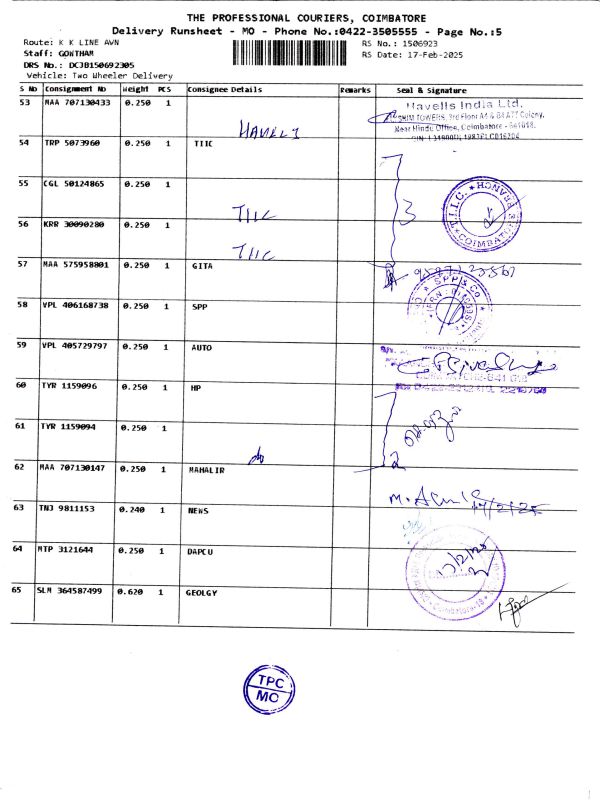 THE PROFESSIONAL COURIERS, COIMBATORE
Delivery Runsheet - MO - Phone No.:0422-3505555 - Page No.:5
Route: K K LINE AWN
RS No.: 1506923
Staff: GOWTHAM
RS Date: 17-Feb-2025
DRS No.: DCJB150692305
Vehicle: Two Wheeler Delivery
S No Consignment No Weight PCS Consignee Details Remarks Seal & Signature
53 MAA 707130433 0.250 1 HAVELI
Havells India Ltd.
54 TRP 5073960 0.250 1 TIIC
55 CGL 50124865 0.250 1 TIIC
3
T.I.I.C. BRANCH COIMBATORE
56 KRR 30090280 0.250 1 TIIC
57 MAA 575958801 0.250 1 GITA
58 VPL 406168738 0.250 1 SPP
SPP & Co
59 VPL 405729797 0.250 1 AUTO
60 TYR 1159096 0.250 1 HP
61 TYR 1159094 0.250 1 do
2
62 MAA 707130147 0.250 1 MAHALIR
63 TNJ 9811153 0.240 1 NEWS
17/2/25
64 MTP 3121644 0.250 1 DAPCU
17/2/25
Coimbatore-18
65 SLM 364587499 0.620 1 GEOLGY
TPC
MO